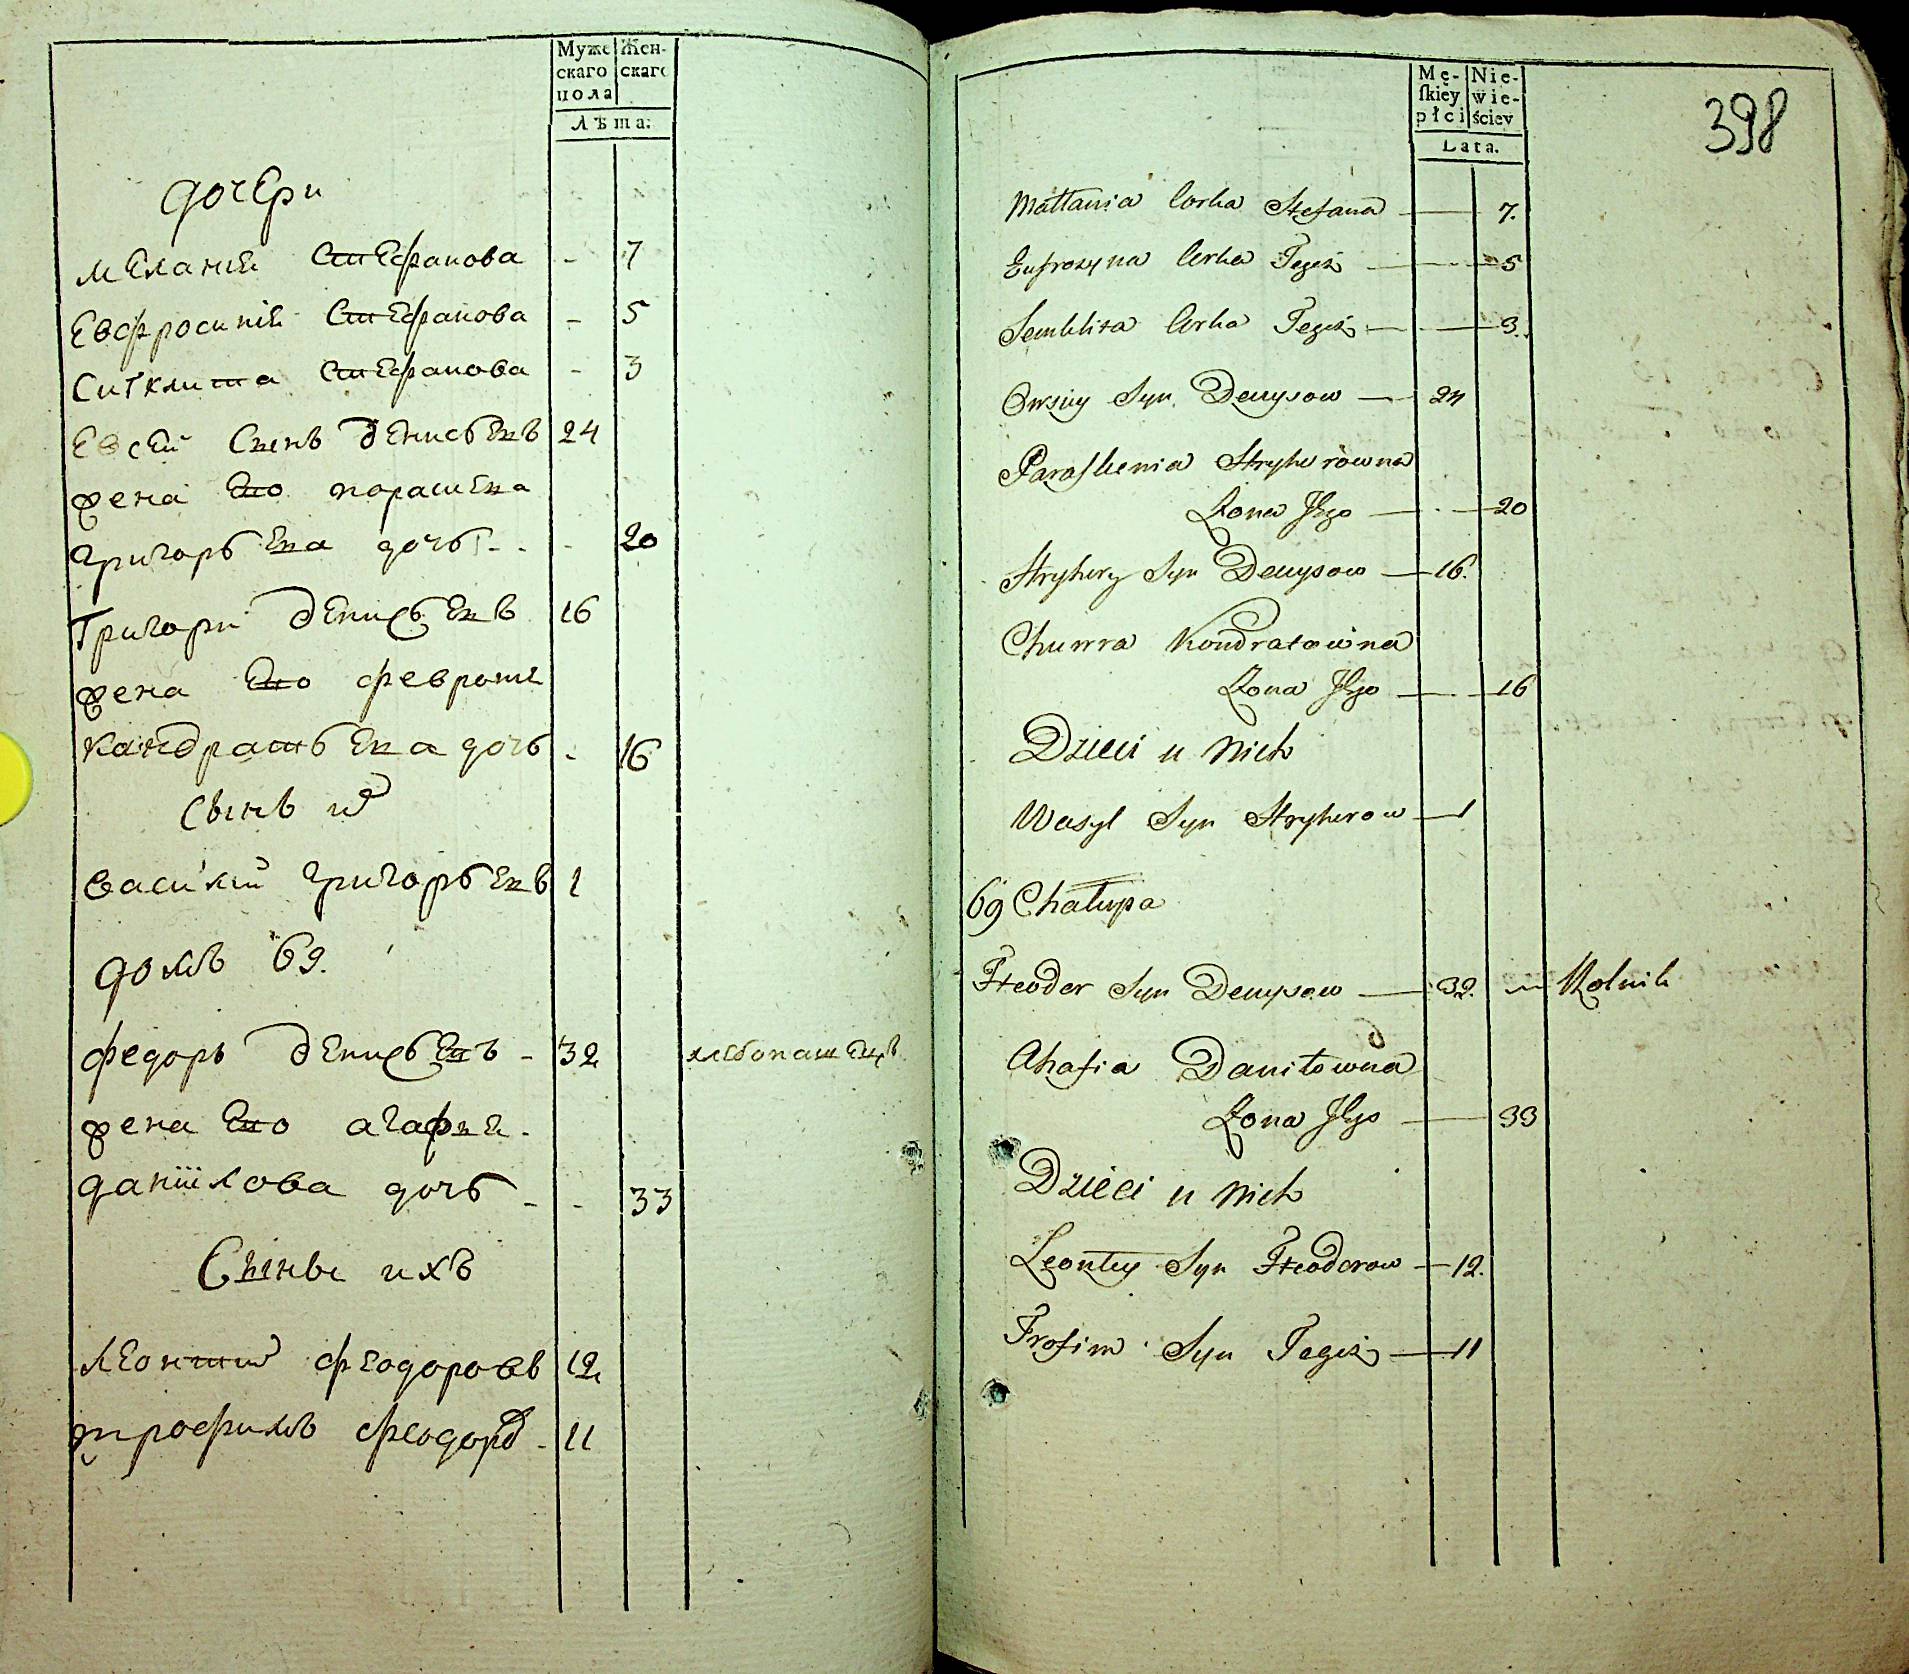 Муже Жен-
скаго скаго
пола
Лѣта:
дочери
Меланий Стефанова - 7
Евфросиний Стефанова - 5
Сигклита Стефанова - 3
Евсей Сынъ денисьевъ 24
жена Ево порасвева
григорьева дочь - 20
Григори денисьевъ 16
жена Ево феврония
кандратьева дочь - 16
Сынъ их
василий григорьевъ 1
домъ 69.
федоръ денисьевъ - 32 хлѣбопашецъ
жена Ево агафия
данiилова дочь - - 33
Сыны ихъ
леонтий феодоровъ 12
трофимъ феодоро - 11
398
Mę- Nie-
ſkiey wie-
płci ściey
Lata.
Małania Corka Stefana — 7.
Eufrozyna Corka Tegoż — 5
Senklita Corka Tegoż — 3.
Owsiey Syn Denysow — 24
Paraskewia Hryhorowna
Żona Jego — 20
Hryhory Syn Denysow — 16.
Chwvra Kondratowna
Żona Jego — 16
Dzieci u nich
Wasyl Syn Hryhorow — 1
69 Chałupa
Fteodor Syn Denysow — 32. Rolnik
Ahafia Daniłowna
Żona Jego — 33
Dzieci u nich
Leonty Syn Fteodorow — 12.
Trofim Syn Tegoż — 11